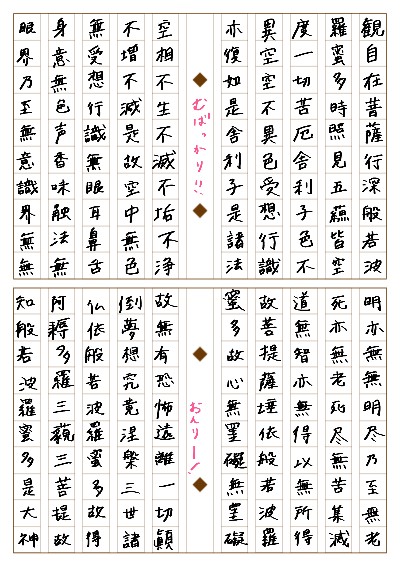 観自在菩薩行深般若波
羅蜜多時照見五蘊皆空
度一切苦厄舎利子色不
異空空不異色受想行識
亦復如是舎利子是諸法
◆むばっかり!!◆
空相不生不滅不垢不浄
不増不減是故空中無色
無受想行識無眼耳鼻舌
身意無色声香味触法無
眼界乃至無意識界無無
明亦無無明尽乃至無老
死亦無老死尽無苦集滅
道無智亦無得以無所得
故菩提薩埵依般若波羅
蜜多故心無罣礙無罣礙
◆おんりー!◆
故無有恐怖遠離一切顛
倒夢想究竟涅槃三世諸
仏依般若波羅蜜多故得
阿耨多羅三藐三菩提故
知般若波羅蜜多是大神